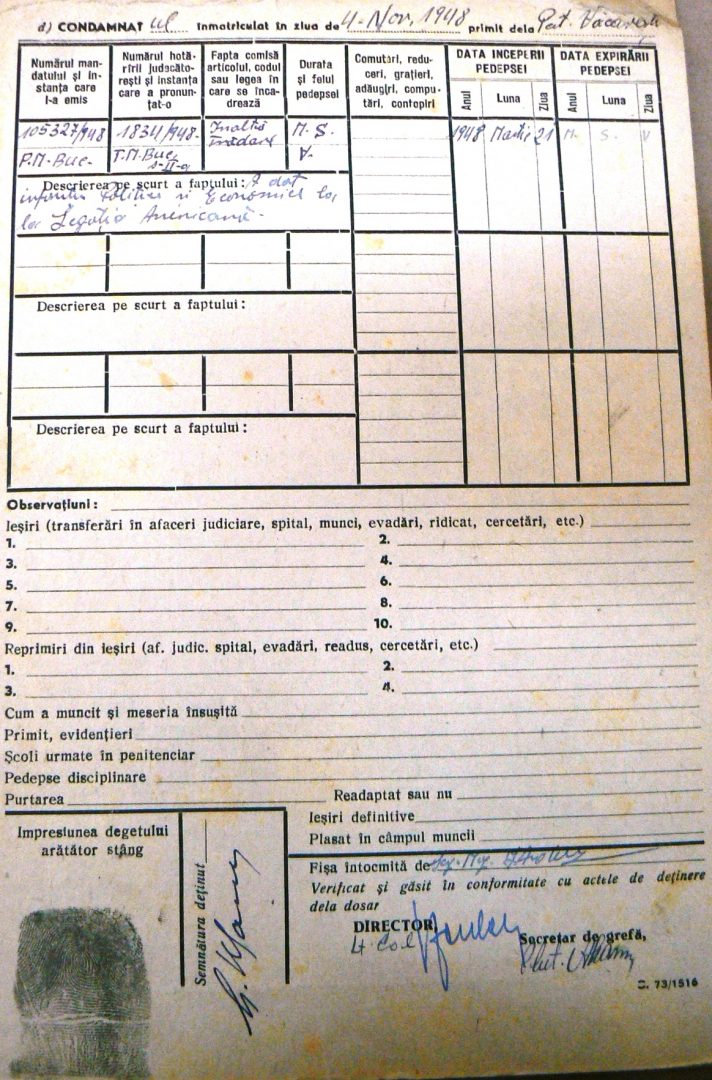 d) CONDAMNAT ul înmatriculat în ziua de 4. Nov. 1948 primit dela Pet. Văcărești
Numărul man-
datului și in-
stanța care
l-a emis
Numărul hotă-
rîrii judecăto-
rești și instanța
care a pronun-
țat-o
Fapta comisă
articolul, codul
sau legea în
care se înca-
drează
Durata
și felul
pedepsei
Comutări, redu-
ceri, grațieri,
adăugiri, compu-
tări, contopiri
DATA INCEPERII
PEDEPSEI
DATA EXPIRĂRII
PEDEPSEI
Anul Luna Ziua Anul Luna Ziua
105327/948 1834/948 Inaltă M. S. 1948 Martie 21 M. S. V
P.M. Buc. T.M. Buc. trădare V.
s-II-a
Descrierea pe scurt a faptului: A dat
Politice si Economice
la Legația Americană.
Descrierea pe scurt a faptului:
Descrierea pe scurt a faptului:
Observațiuni:
Ieșiri (transferări în afaceri judiciare, spital, munci, evadări, ridicat, cercetări, etc.)
1. 2.
3. 4.
5. 6.
7. 8.
9. 10.
Reprimiri din ieșiri (af. judic. spital, evadări, readus, cercetări, etc.)
1. 2.
3. 4.
Cum a muncit și meseria însușită
Primit, evidențieri
Școli urmate în penitenciar
Pedepse disciplinare
Purtarea Readaptat sau nu
Ieșiri definitive
Plasat în câmpul muncii
Impresiunea degetului
arătător stâng
Semnătura deținut
Fișa întocmită de
Verificat și găsit în conformitate cu actele de deținere
dela dosar
DIRECTOR,
Lt. Col
Secretar de grefă,
Plut.
C. 73/1516